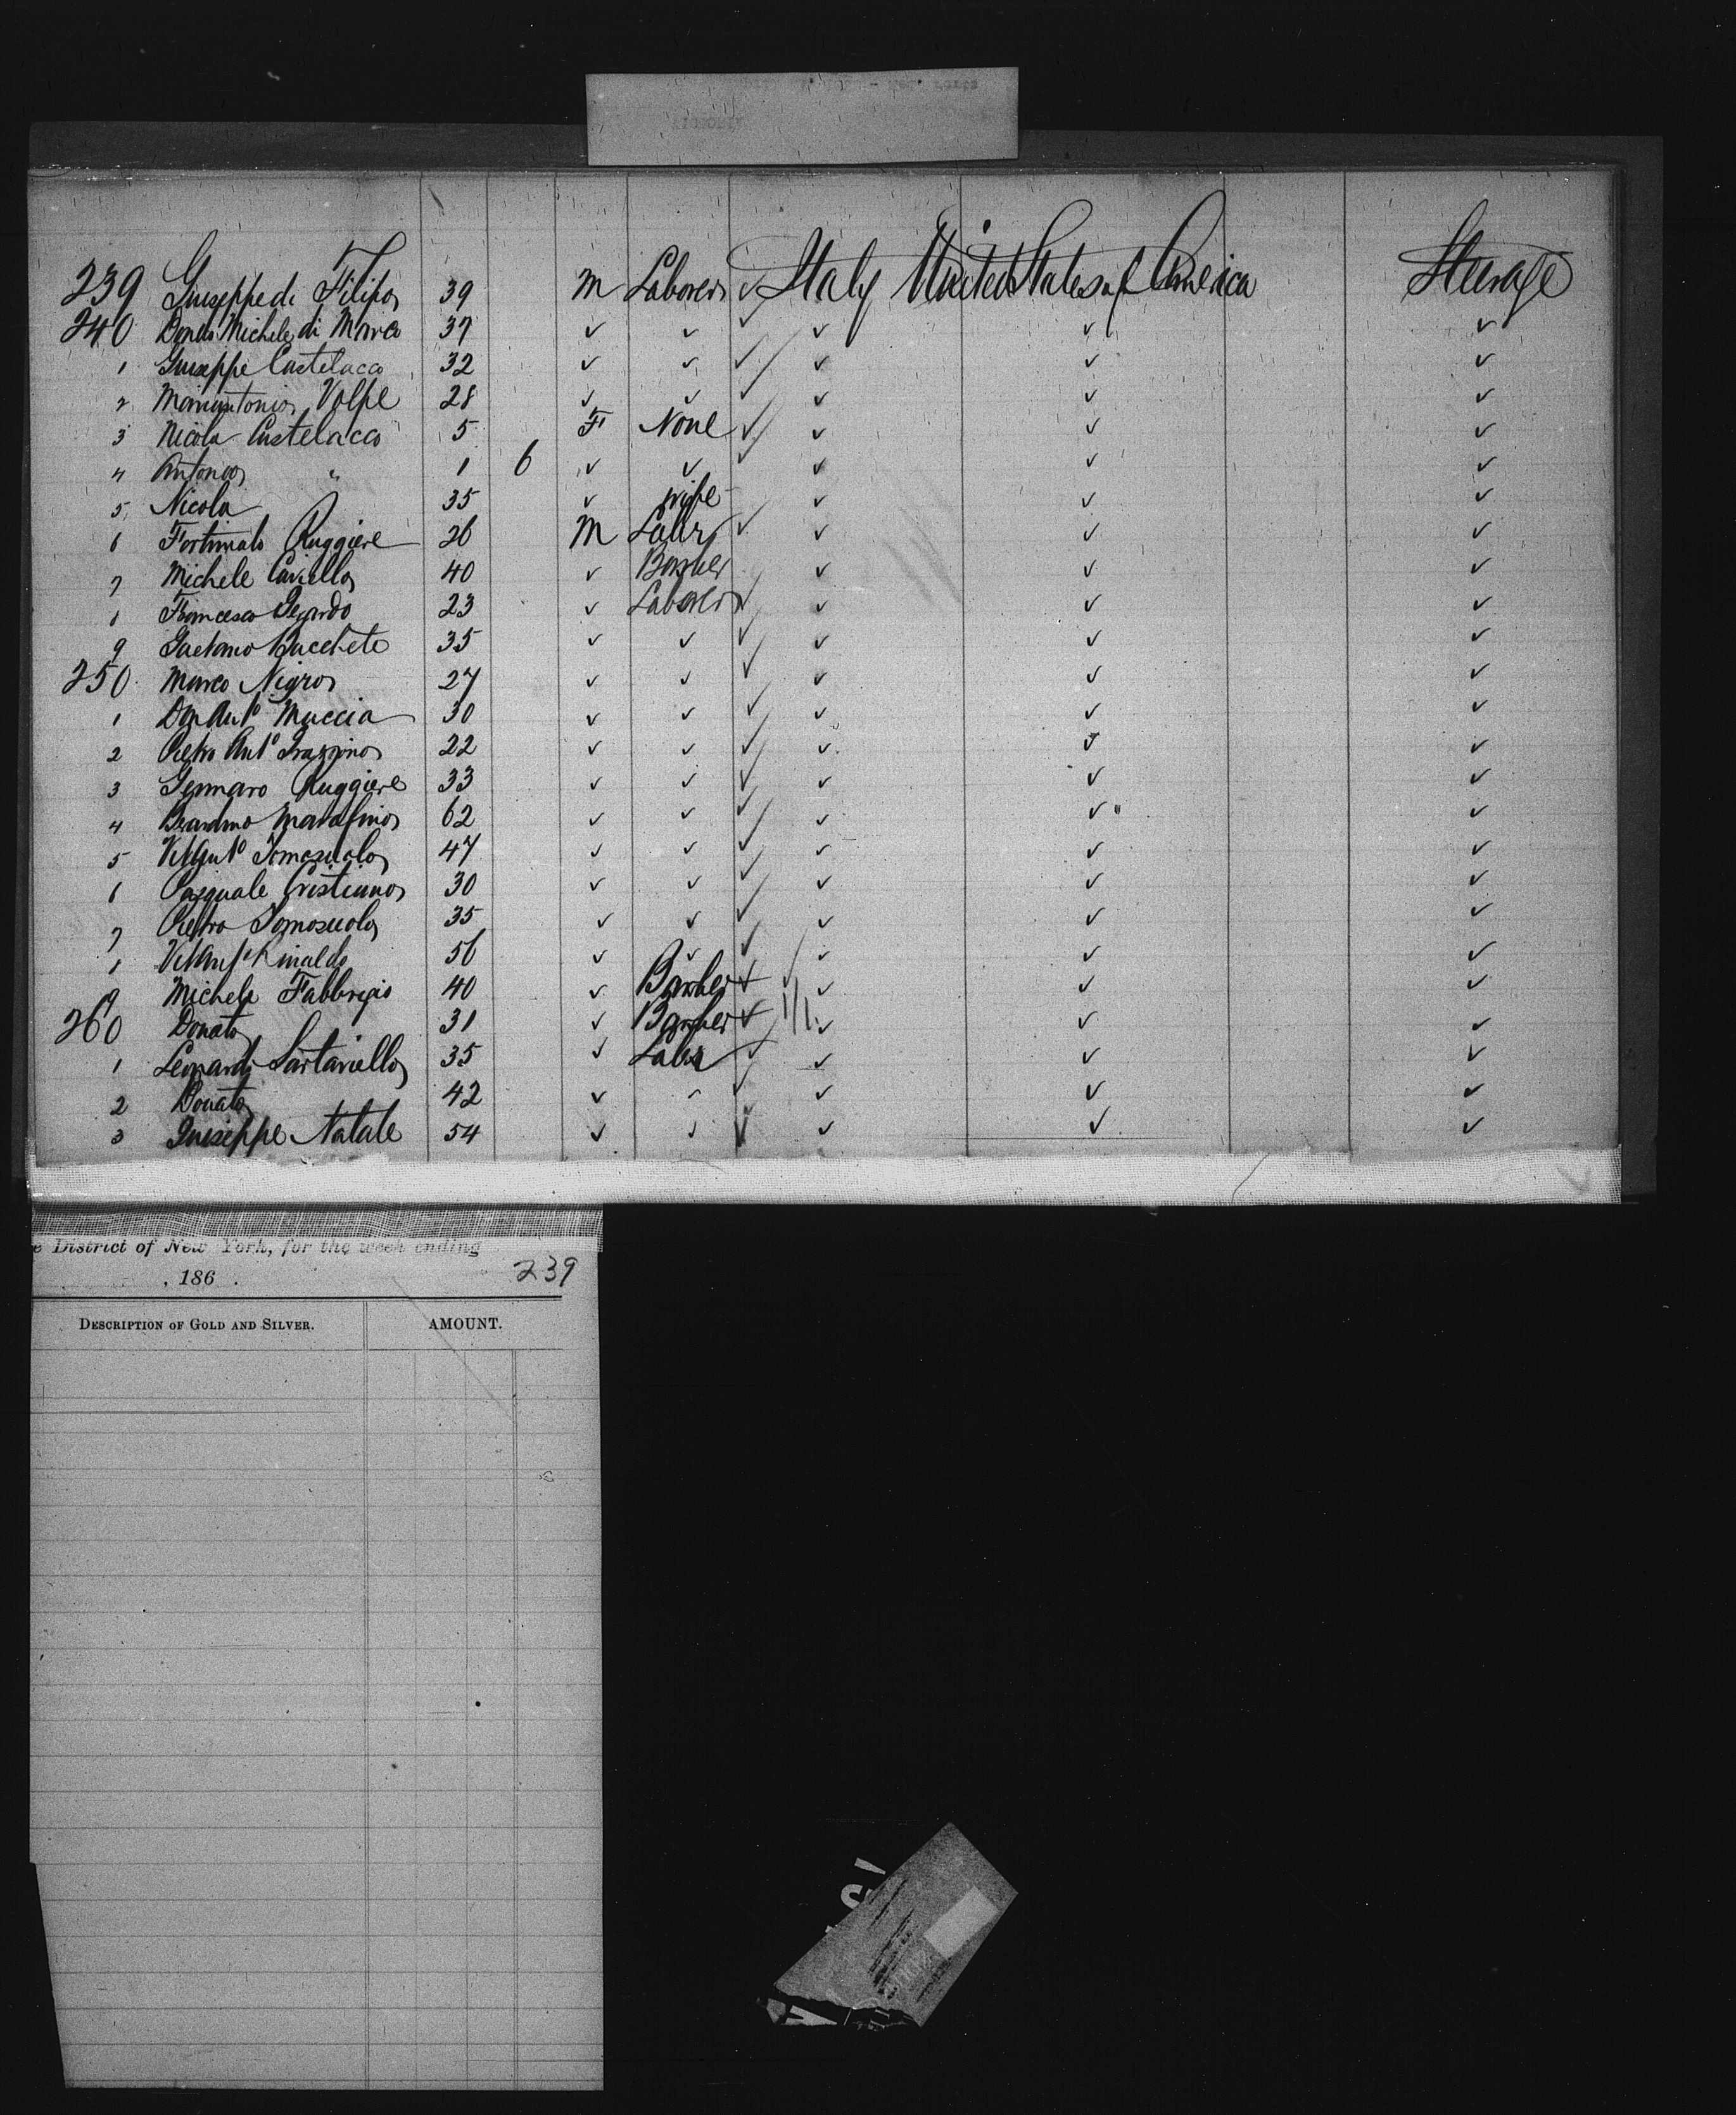 239 Giuseppe di Filipo 39 M Laborer ✓ Italy United States of America Steerage
240 Donato Michele di Marco 37 ✓ ✓ ✓ ✓ ✓ ✓
1 Giuseppe Castelacco 32 ✓ ✓ ✓ ✓ ✓ ✓
2 Mariantonia Volpe 28 ✓ ✓ ✓ ✓ ✓ ✓
3 Nicola Castelacco 5 F None ✓ ✓ ✓ ✓
4 Antonio " 1 6 ✓ ✓ ✓ ✓ ✓ ✓
5 Nicola 35 ✓ wife ✓ ✓ ✓
6 Fortunato Ruggiere 26 M Labr ✓ ✓ ✓ ✓
7 Michele Caviello 40 ✓ Barber ✓ ✓ ✓
8 Francesco Gerardo 23 ✓ Laborer ✓ ✓ ✓ ✓
9 Gaetano 35 ✓ ✓ ✓ ✓ ✓ ✓
250 Marco Nigro 27 ✓ ✓ ✓ ✓ ✓ ✓
1 Don Anto Muccia 30 ✓ ✓ ✓ ✓ ✓ ✓
2 Pietro Anto 22 ✓ ✓ ✓ ✓ ✓ ✓
3 Gennaro Ruggiere 33 ✓ ✓ ✓ ✓ ✓ ✓
4 62 ✓ ✓ ✓ ✓ ✓ ✓
5 Vit Anto Tomasuolo 47 ✓ ✓ ✓ ✓ ✓ ✓
6 Pasquale Cristiano 30 ✓ ✓ ✓ ✓ ✓ ✓
7 Pietro Tomasuolo 35 ✓ ✓ ✓ ✓ ✓ ✓
8 Vit Anto Rinaldo 56 ✓ ✓ ✓ ✓ ✓ ✓
9 Michele Fabbrizio 40 ✓ Barber ✓ ✓ ✓ ✓
260 Donato 31 ✓ Barber ✓ ✓ ✓ ✓
1 Leonardo Santaniello 35 ✓ Labr ✓ ✓ ✓ ✓
2 Donato 42 ✓ ✓ ✓ ✓ ✓ ✓
3 Giuseppe Natale 54 ✓ ✓ ✓ ✓ ✓ ✓
e District of New York, for the week ending
, 186 . 239
DESCRIPTION OF GOLD AND SILVER. AMOUNT.